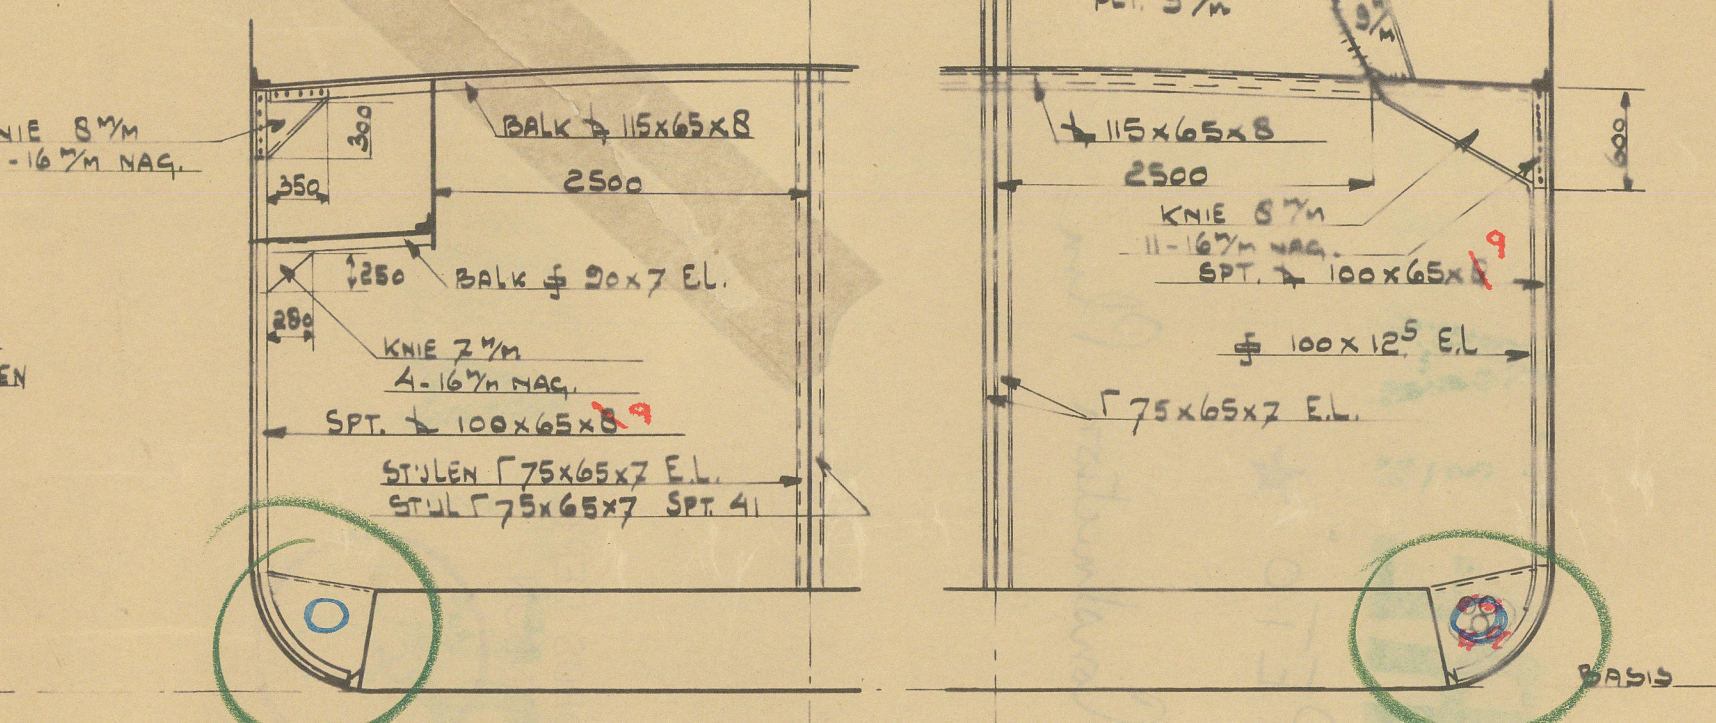 PLT. 9 m/m
9 m/m
NIE 8 m/m
-16 m/m NAG.
300
350
BALK 115x65x8
2500
250
BALK 90x7 E.L.
280
KNIE 7 m/m
4-16 m/m NAG.
SPT. 100x65x8 9
STIJLEN 75x65x7 E.L.
STIJL 75x65x7 SPT. 41
EN
115x65x8
2500
600
KNIE 8 m/m
11-16 m/m NAG.
SPT. 100x65x8 9
100x12⁵ E.L
75x65x7 E.L.
BASIS